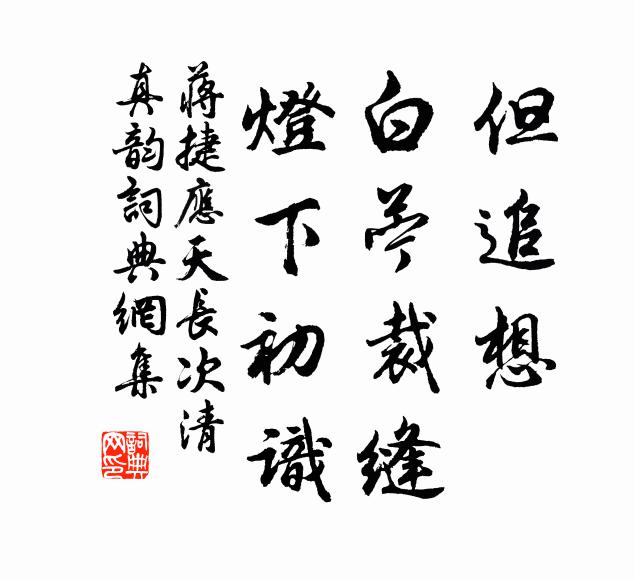 但追想
白苧裁縫
燈下初識
蔣捷應天長次清
真韵詞典網集
詞典
网印